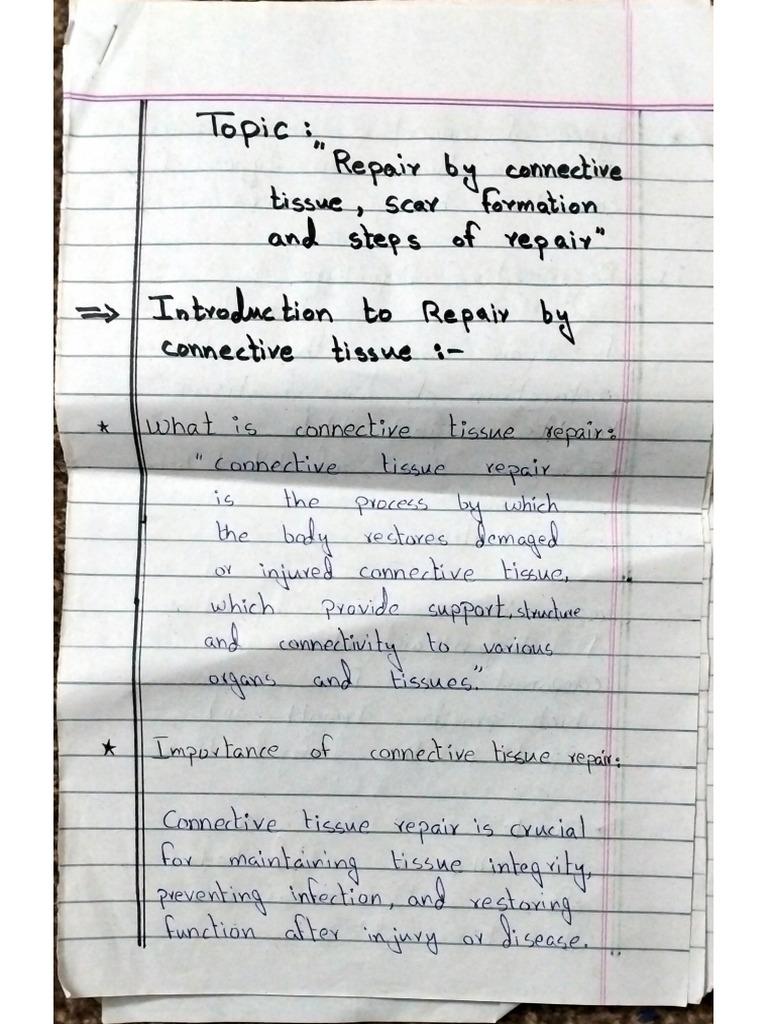 Topic:
"Repair by connective
tissue, scar formation
and steps of repair"
⇒ Introduction to Repair by
connective tissue :-
* What is connective tissue repair:
"Connective tissue repair
is the process by which
the body restores demaged
or injured connective tissue,
which provide support, structure
and connectivity to various
organs and tissues."
* Importance of connective tissue repair:
Connective tissue repair is crucial
for maintaining tissue integrity,
preventing infection, and restoring
function after injury or disease.